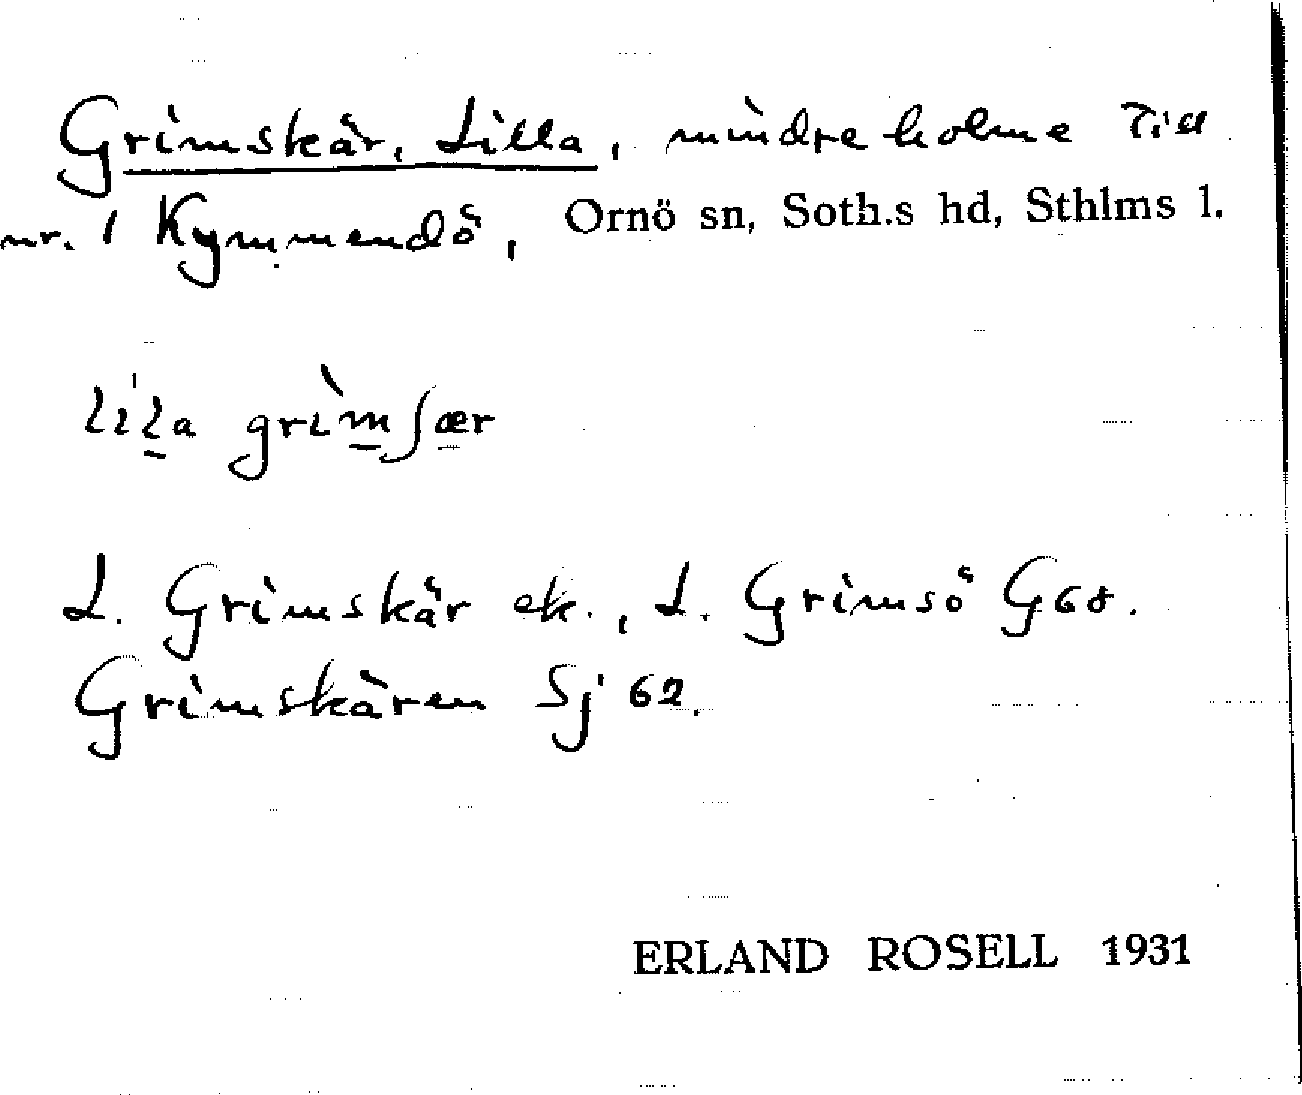 Grimskär, Lilla, mindre holme till
nr. 1 Kymmendö, Ornö sn, Soth.s hd, Sthlms l.
lịla grìmʃær
L. Grimskär ek., L. Grimsö G68.
Grimskären Sj 62.
ERLAND ROSELL 1931